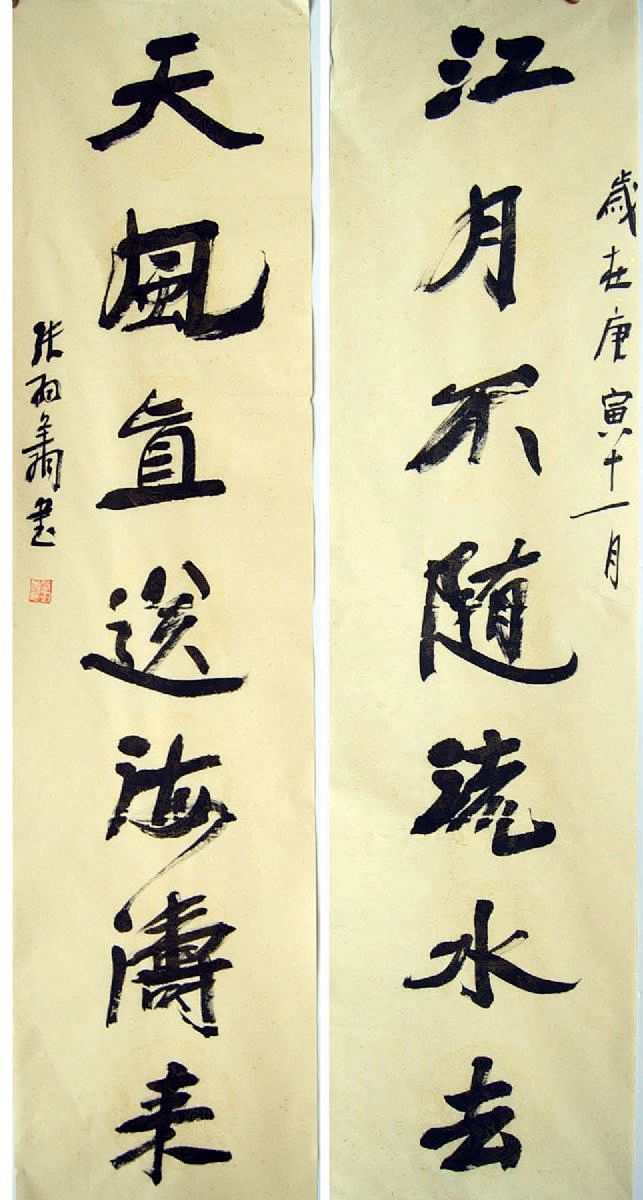 歲在庚寅十一月
江月不随流水去
天風直送海濤来
張羽翔書